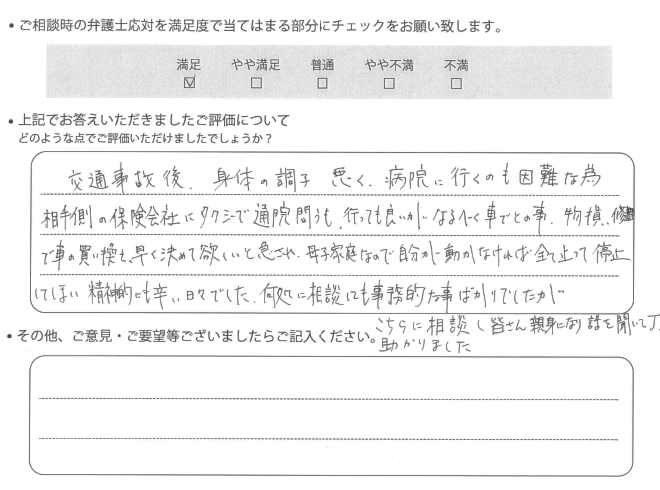 • ご相談時の弁護士応対を満足度で当てはまる部分にチェックをお願い致します。
満足 やや満足 普通 やや不満 不満
☑ □ □ □ □
• 上記でお答えいただきましたご評価について
どのような点でご評価いただけましたでしょうか？
交通事故後、身体の調子 悪く、病院に行くのも困難な為
相手側の保険会社にタクシーで通院問うも、行っても良いがなるべく車でとの事、物損、修
で車の買い換えも早く決めて欲しいと急され、母子家庭なので自分が動かなければ全て止って停止
してしまい 精神的にも辛い日々でした。何処に相談にも事務的な事ばかりでしたが
こちらに相談し皆さん親身になり話を聞いて
助かりました
• その他、ご意見・ご要望等ございましたらご記入ください。